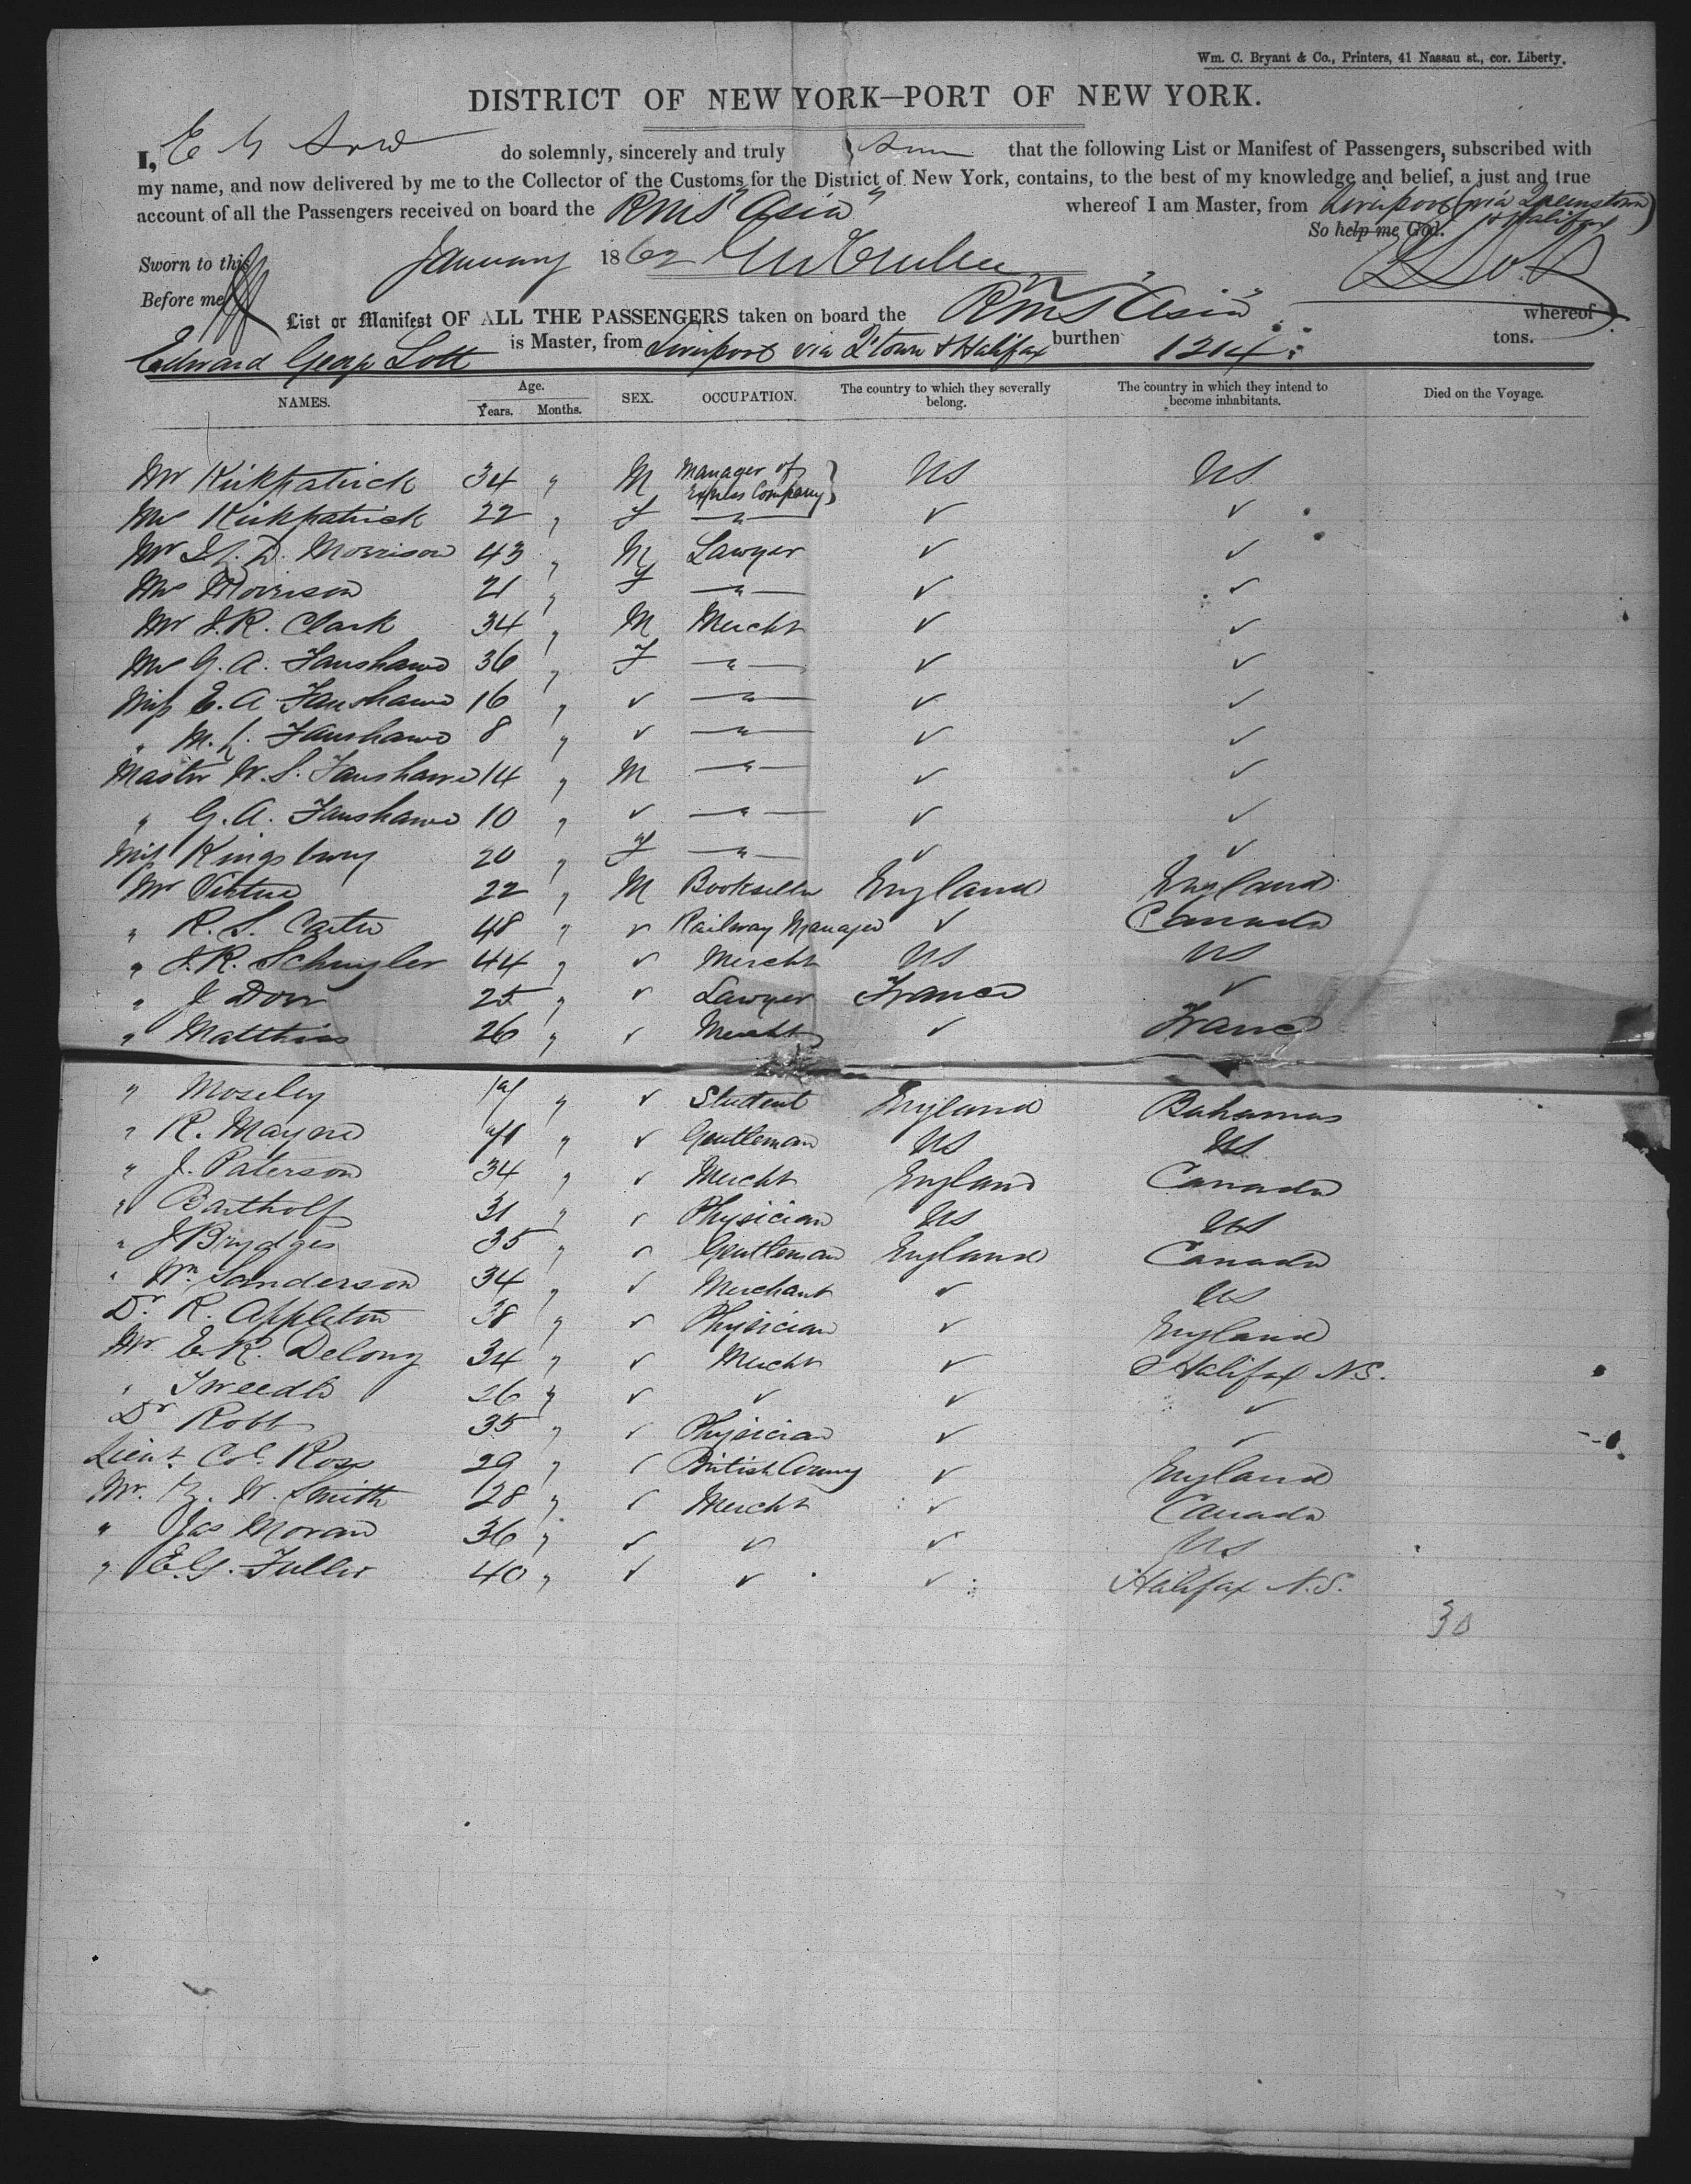 Wm. C. Bryant & Co., Printers, 41 Nassau st., cor. Liberty,
DISTRICT OF NEW YORK—PORT OF NEW YORK.
I, E G Lott do solemnly, sincerely and truly that the following List or Manifest of Passengers, subscribed with
my name, and now delivered by me to the Collector of the Customs for the District of New York, contains, to the best of my knowledge and belief, a just and true
account of all the Passengers received on board the RMS "Asia" whereof I am Master, from Liverpool (via Queenstown
& Halifax)
So help me God.
Sworn to this January 1862
Before me
List or Manifest OF ALL THE PASSENGERS taken on board the RMS "Asia" whereof
Edward George Lott is Master, from Liverpool via Q'town & Halifax burthen 1214 tons.
NAMES. Age. Years. Months. SEX. OCCUPATION. The country to which they severally belong. The country in which they intend to become inhabitants. Died on the Voyage.
Mr Kirkpatrick 34 " M Manager of Express Company } US US
Mrs Kirkpatrick 22 " F — " — ✓ ✓
Mr D. Morrison 43 " M Lawyer ✓ ✓
Mrs Morrison 21 " F — " — ✓ ✓
Mr J.R. Clark 34 " M Mercht ✓ ✓
Mrs G. A. Fanshawe 36 " F — " — ✓ ✓
Miss E. A Fanshawe 16 " ✓ — " — ✓ ✓
" M. Fanshawe 8 " ✓ — " — ✓ ✓
Master W. S. Fanshawe 14 " M — " — ✓ ✓
" G. A. Fanshawe 10 " ✓ — " — ✓ ✓
Miss Kingsbury 20 " F — " — ✓ ✓
Mr Virtue 22 " M Bookseller England England
" R. S. Carter 48 " ✓ Railway Manager ✓ Canada
" J.R. Schuyler 44 " ✓ Mercht US US
" J Dorr 25 " ✓ Lawyer France ✓
" Matthias 26 " ✓ Mercht ✓ France
" Moseley 19 " ✓ Student England Bahamas
" R. Mayne " ✓ Gentleman US US
" J. Paterson 34 " ✓ Mercht England Canada
" Bartholf 31 " ✓ Physician US US
" J Brydges 35 " ✓ Gentleman England Canada
" Wm Sanderson 34 " ✓ Merchant ✓ US
Dr R. Appleton 38 " ✓ Physician ✓ England
Mr E. R. Delong 34 " ✓ Mercht ✓ Halifax N.S.
" Tweedie 26 " ✓ ✓ ✓ ✓
Dr Robb 35 " ✓ Physician ✓ ✓
Lieut. Col. Ross 29 " ✓ British Army ✓ England
Mr. W. Smith 28 " ✓ Mercht ✓ Canada
" Jas Moran 36 " ✓ ✓ ✓ US
" E.G. Fuller 40 " ✓ ✓ ✓ Halifax N.S.
30